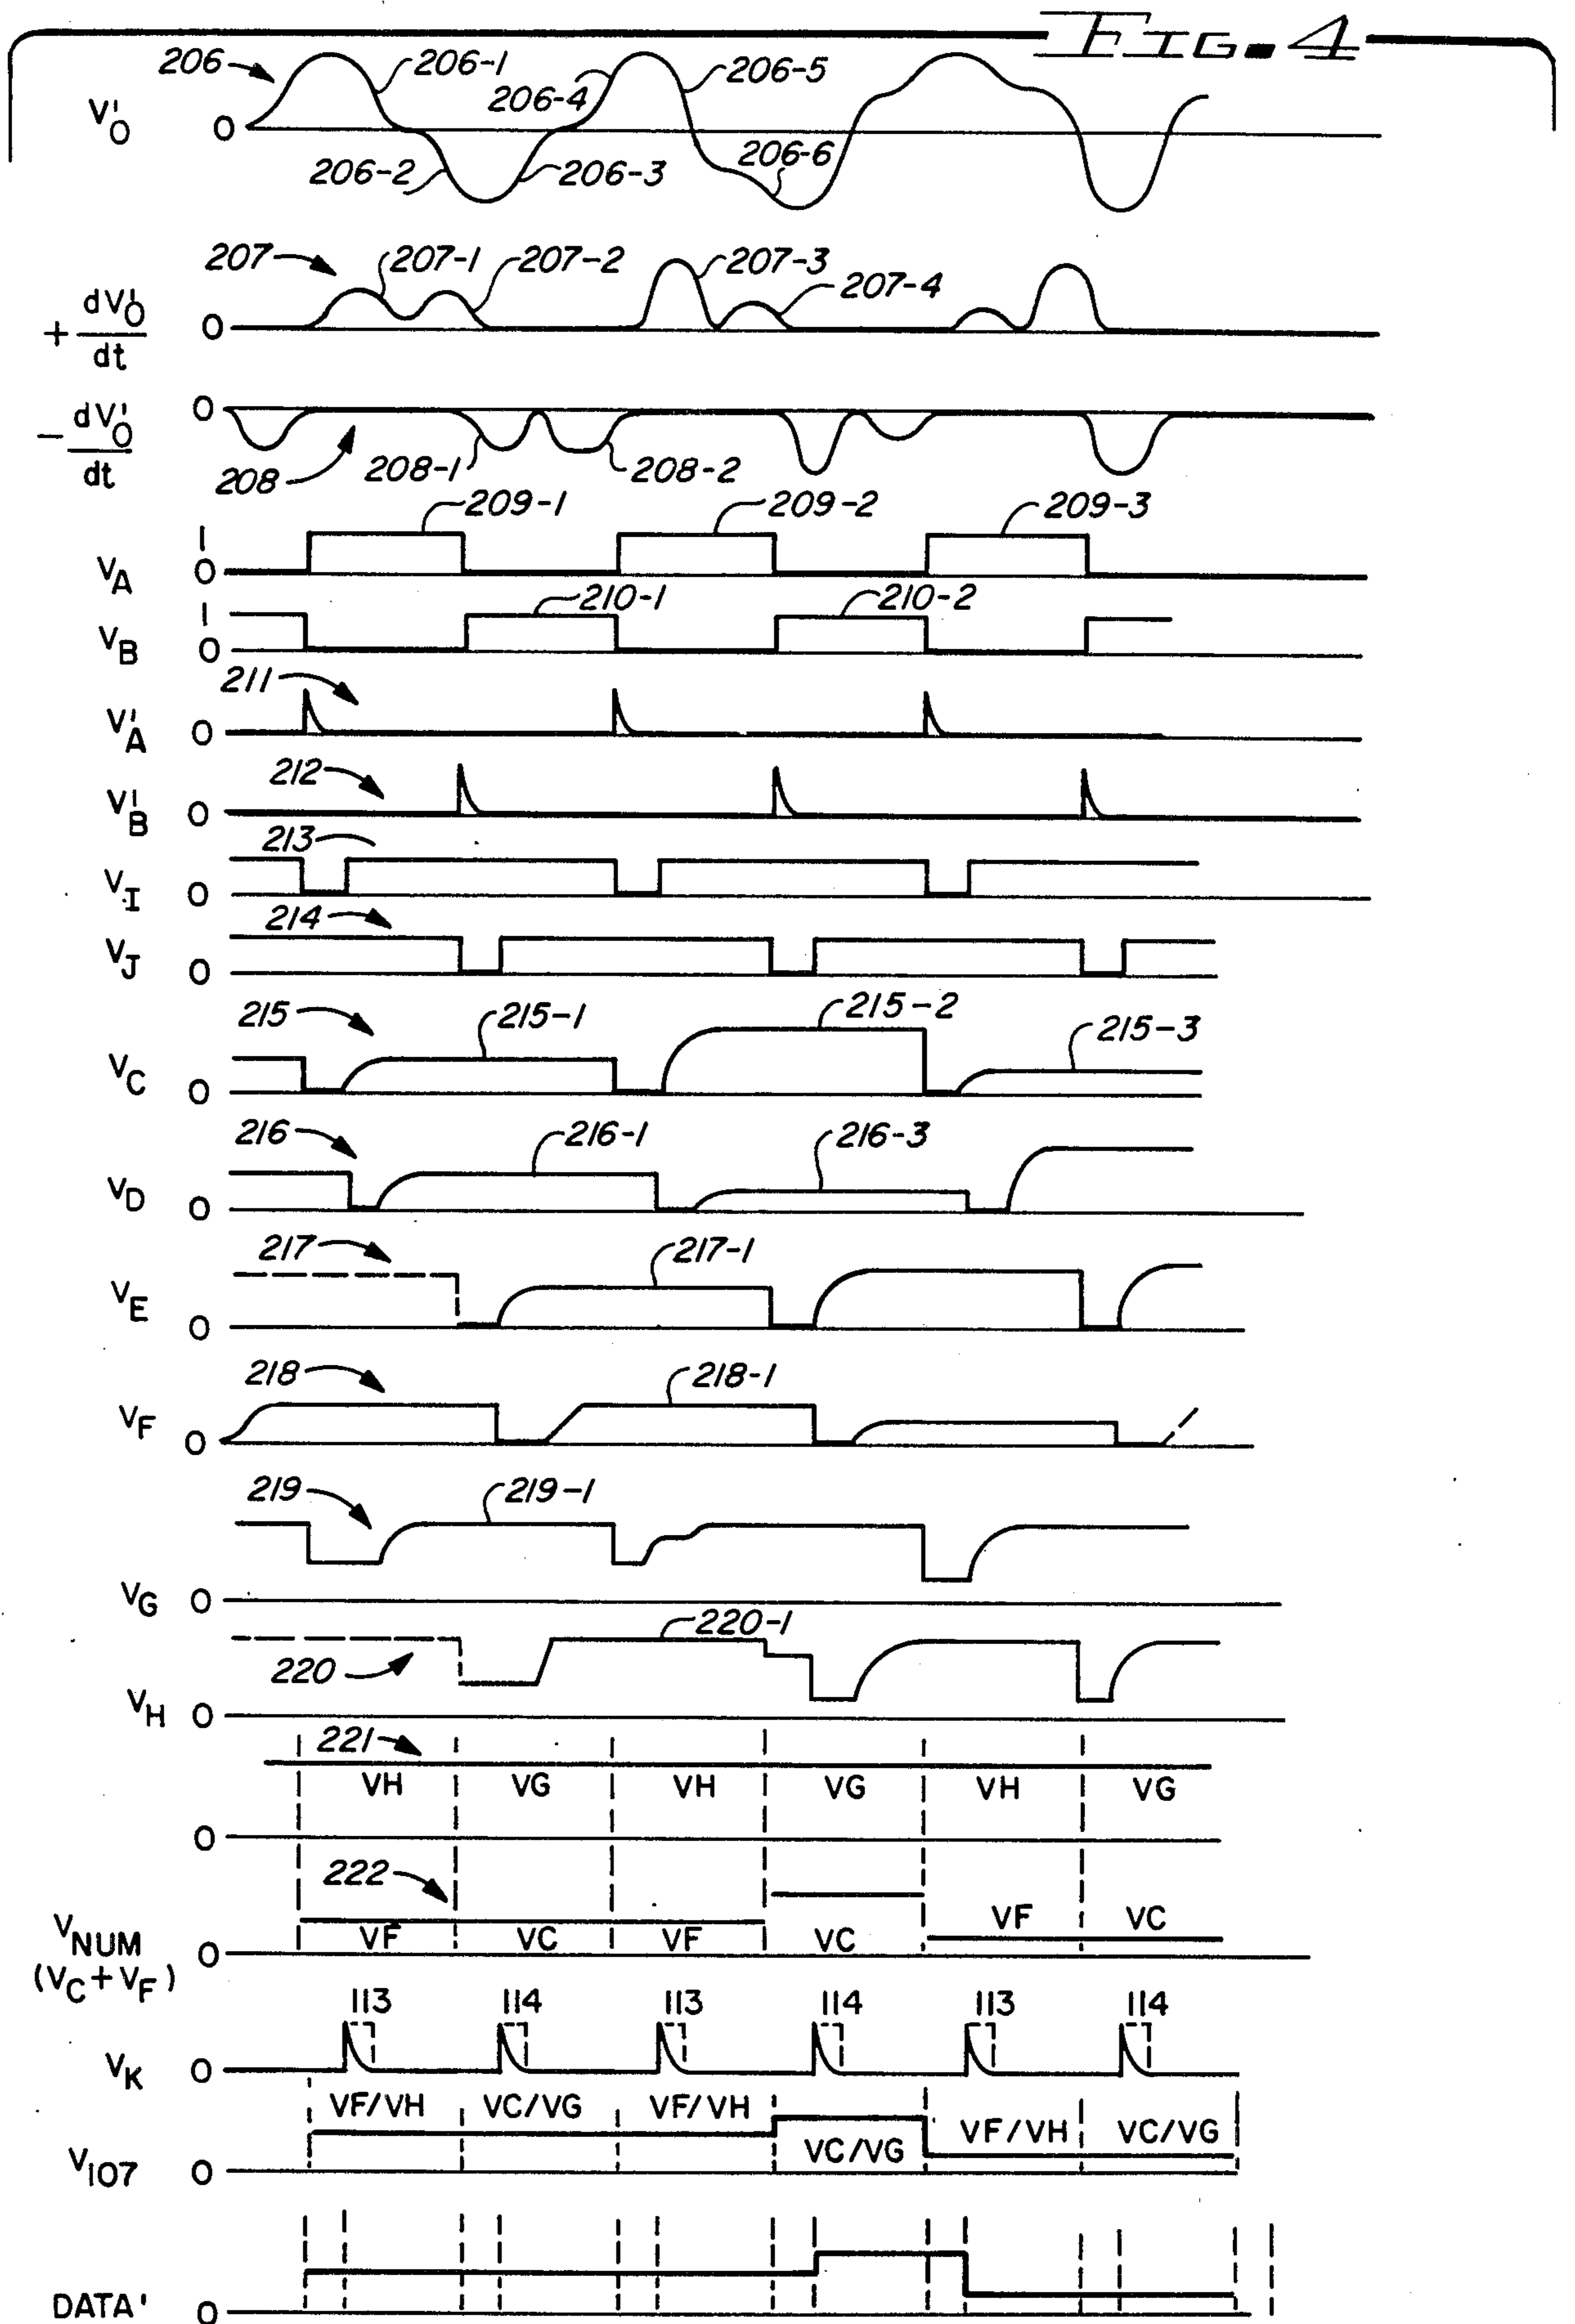 FIG. 4
206
206-1
206-4
206-5
V'O
0
206-2
206-3
206-6
207
207-1
207-2
207-3
207-4
+ dV'O/dt
0
- dV'O/dt
0
208
208-1
208-2
209-1
209-2
209-3
VA
1
0
210-1
210-2
VB
1
0
211
V'A
0
212
V'B
0
213
VI
0
214
VJ
0
215
215-1
215-2
215-3
VC
0
216
216-1
216-3
VD
0
217
217-1
VE
0
218
218-1
VF
0
219
219-1
VG
0
220-1
220
VH
0
221
VH VG VH VG VH VG
0
222
VF VC VF VC VF VC
VNUM
0
(VC+VF)
113 114 113 114 113 114
VK
0
VF/VH VC/VG VF/VH VC/VG VF/VH VC/VG
V107
0
DATA'
0